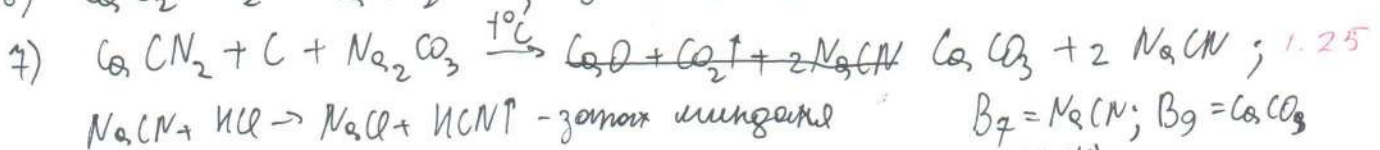 7) CaCN₂ + C + Na₂CO₃ —t°C→ ~~CaO + CO₂↑ + 2NaCN~~ CaCO₃ + 2 NaCN ; 1.25
NaCN + HCl → NaCl + HCN↑ - запах миндаля B₇ = NaCN; B₉ = CaCO₃